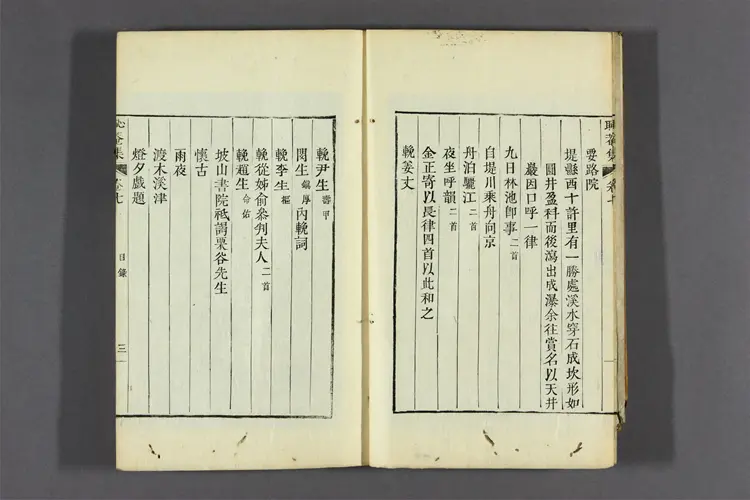 要路院
堤縣西十許里有一勝處溪水穿石成坎形如
圓井盈科而後瀉出成瀑余往賞名以天井
巖因口呼一律
九日林池卽事二首
自堤川乘舟向京
舟泊驪江二首
夜坐呼韻二首
金正寄以長律四首以此和之
輓姜丈
輓尹生壽甲
閔生鎭厚內輓詞
輓李生樞
輓從姊俞參判夫人二首
輓趙生命佑
坡山書院祗謁栗谷先生
懷古
雨夜
渡木溪津
燈夕戲題
集 卷七
目錄
三